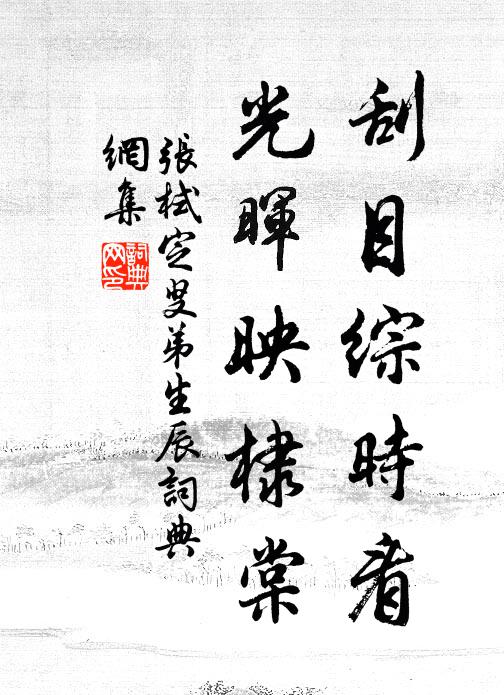 刮目综時看
光暉映棣棠
張栻定叟弟生辰詞典
網集
詞典网印